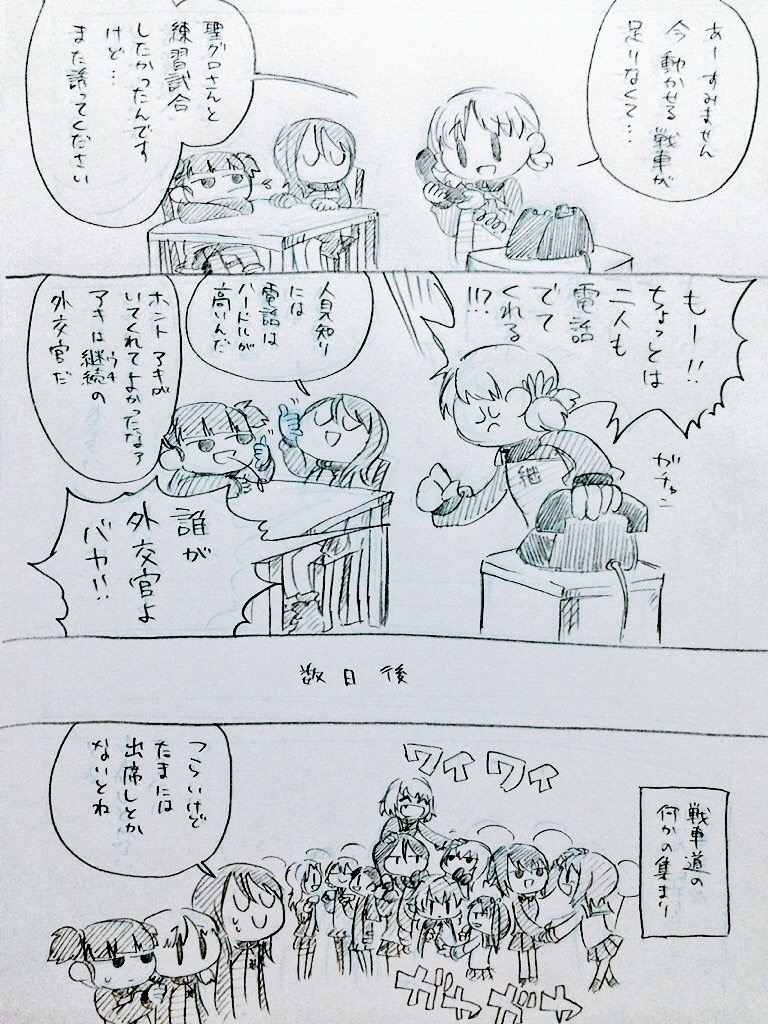 あーすみません
今動かせる戦車が
足りなくて…
聖グロさんと
練習試合
したかったんです
けど…
また誘ってください
もー!!
ちょっとは
二人も
電話
でて
くれる
!!?
ガチャン
継
人見知り
には
電話は
ハードルが
高いんだ
ホント アキが
いてくれてよかったなァ
アキは継続の
ウチ
外交官だ
誰が
外交官よ
バカ!!
数日後
戦車道の
何かの集まり
ワイワイ
つらいけど
たまには
出席しとか
ないとね
ガヤガヤ